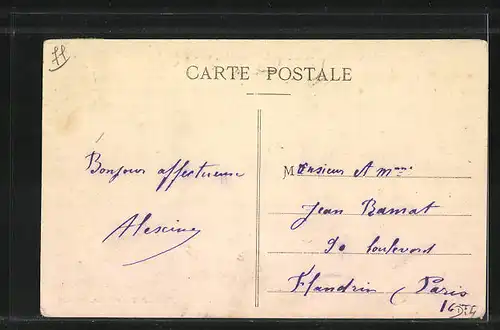 77
CARTE POSTALE
Bonjour affectueux
Monsieur et Mme
Jean Ramat
90 boulevard
Flandrin, Paris
16